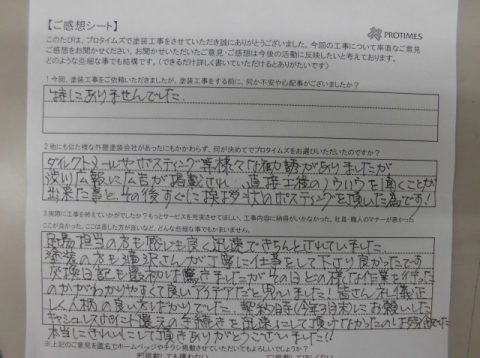 【ご感想シート】
PROTIMES
このたびは、プロタイムズで塗装工事をさせていただき誠にありがとうございました。今回の工事について率直なご意見
ご感想をお聞かせください。お聞かせいただいたご意見・ご感想は今後の活動に反映したいと考えております。
どのような些細な事でも結構です。(できるだけ詳しく書いていただけるとありがたいです)
1.今回、塗装工事をご依頼いただきましたが、塗装工事をする前に、何か不安や心配事がございましたか?
特にありませんでした。
2.他にも似た様な外壁塗装会社があったにもかかわらず、何が決めてでプロタイムズをお選びいただいたのですか?
ダイレクトメールやポスティング等様々な勧誘がありましたが
渋川広報に広告が掲載され、直接工程のノウハウを聞くことが
出来た事と、その後すぐに挨拶状のポスティングを頂いた為です!
3.実際に工事を終えていかがでしたか?もっとサービスを充実させてほしい、工事内容に納得がいかなかった、社員・職人のマナーが悪かった
ここが良かった、ここは直した方が良いなど、どんな些細な事でもかまいません。
担当の方も感じも良く迅速できちんとされていました。
塗装の方も 沢さんが丁寧に仕事をして下さり良かったです
交換日記も最初は驚きましたがその日どの様な作業を行った
のかがわかりやすくて良いアイデアだと思いました!皆さん礼儀正
しく人柄の良い方ばかりでした。契約時(今年3月末)にお願いした
キャッシュレスポイント還元の手続きを迅速にして頂けなかったのは残念でした
本当にきれいにして頂きありがとうございました!!
※上記のご意見を匿名でホームページやチラシ掲載させていただいてもよろしいでしょうか?